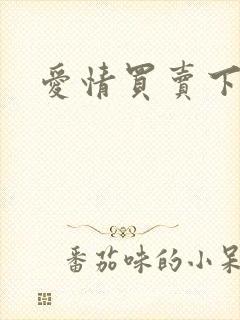 愛情買賣下
番茄味的小呆